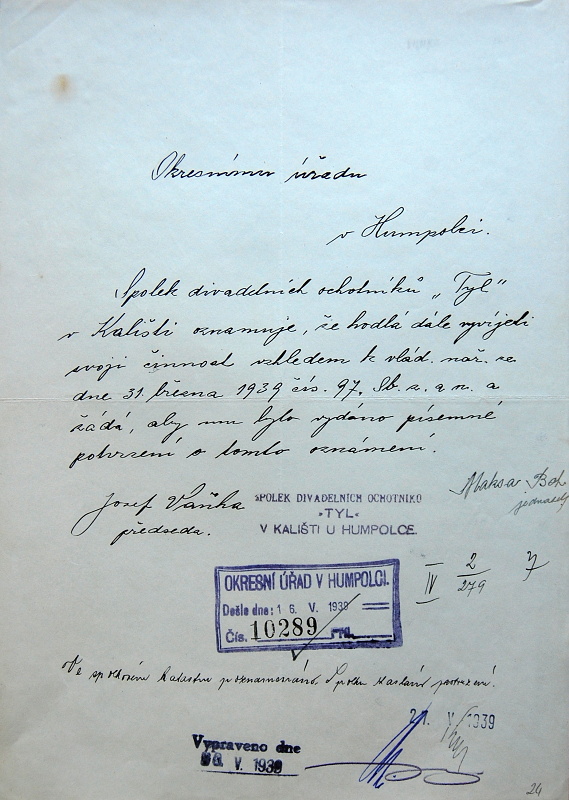 Okresnímu úřadu
v Humpolci.
Spolek divadelních ochotníků „Tyl"
v Kališti oznamuje, že hodlá dále vyvíjeti
svoji činnost vzhledem k vlád. nař. ze
dne 31. března 1939 čís. 97. Sb. z. a n. a
žádá, aby mu bylo vydáno písemné
potvrzení o tomto oznámení.
Josef Vaňha
předseda.
SPOLEK DIVADELNÍCH OCHOTNÍKŮ
»TYL«
V KALIŠTI U HUMPOLCE.
Maksa Boh
jednatel
OKRESNÍ ÚŘAD V HUMPOLCI.
Došlo dne: 16. V. 1939
Čís. 10289
IV 2/279
Ve spolkovém katastru poznamenáno. Spolku zasláno potvrzení.
21. V. 1939
Vypraveno dne
V. 1939
24